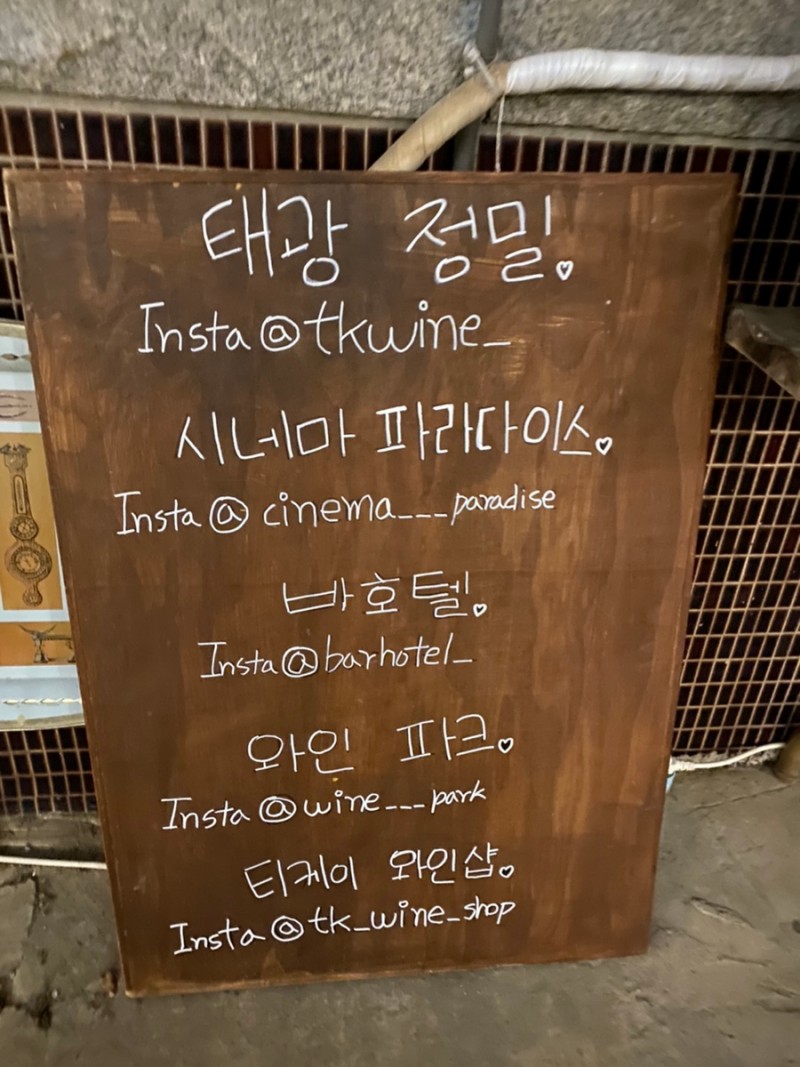 태광 정밀.♡
Insta@tkwine_
시네마 파라다이스.♡
Insta@cinema___paradise
바 호텔.♡
Insta@barhotel_
와인 파크.♡
Insta@wine___park
티케이 와인샵.♡
Insta@tk_wine_shop